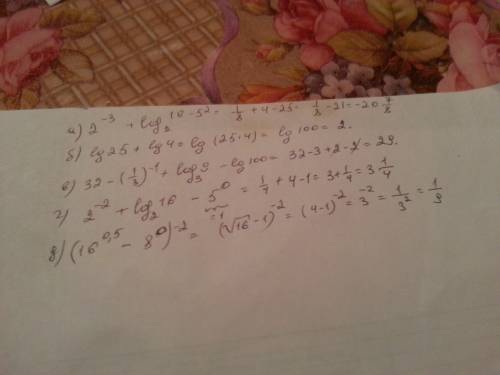 а) 2^-3 + log_2 16 - 5^2 = 1/8 + 4 - 25 = 1/8 - 21 = -20 7/8
б) lg 25 + lg 4 = lg (25·4) = lg 100 = 2.
в) 32 - (1/3)^-1 + log_3 9 - lg 100 = 32 - 3 + 2 - 2 = 29.
г) 2^-2 + log_2 16 - 5^0 = 1/4 + 4 - 1 = 3 + 1/4 = 3 1/4
=1
д) (16^0,5 - 8^0)^-2 = (√16 - 1)^-2 = (4-1)^-2 = 3^-2 = 1/3^2 = 1/9